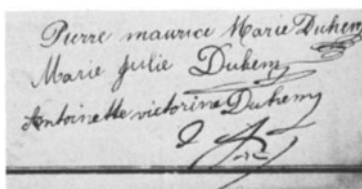 Pierre maurice Marie Duhem
Marie Julie Duhem
Antoinette victorine Duhem